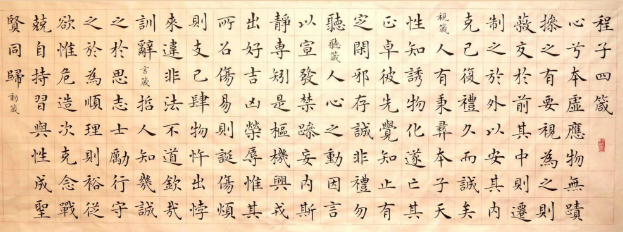 程子四箴
心兮本虛應物無蹟
操之有要視為之則
蔽交於前其中則遷
制之於外以安其內
克己復禮久而誠矣
視箴 人有秉彝本乎天
性知誘物化遂亡其
正卓彼先覺知止有
定閑邪存誠非禮勿
聽 聽箴 人心之動因言
以宣發禁躁妄內斯
靜專矧是樞機興戎
出好吉凶榮辱惟其
所召傷易則誕傷煩
則支己肆物忤出悖
來違非法不道欽哉
訓辭 言箴 哲人知幾誠
之於思志士勵行守
之於為順理則裕從
欲惟危造次克念戰
兢自持習與性成聖
賢同歸 動箴